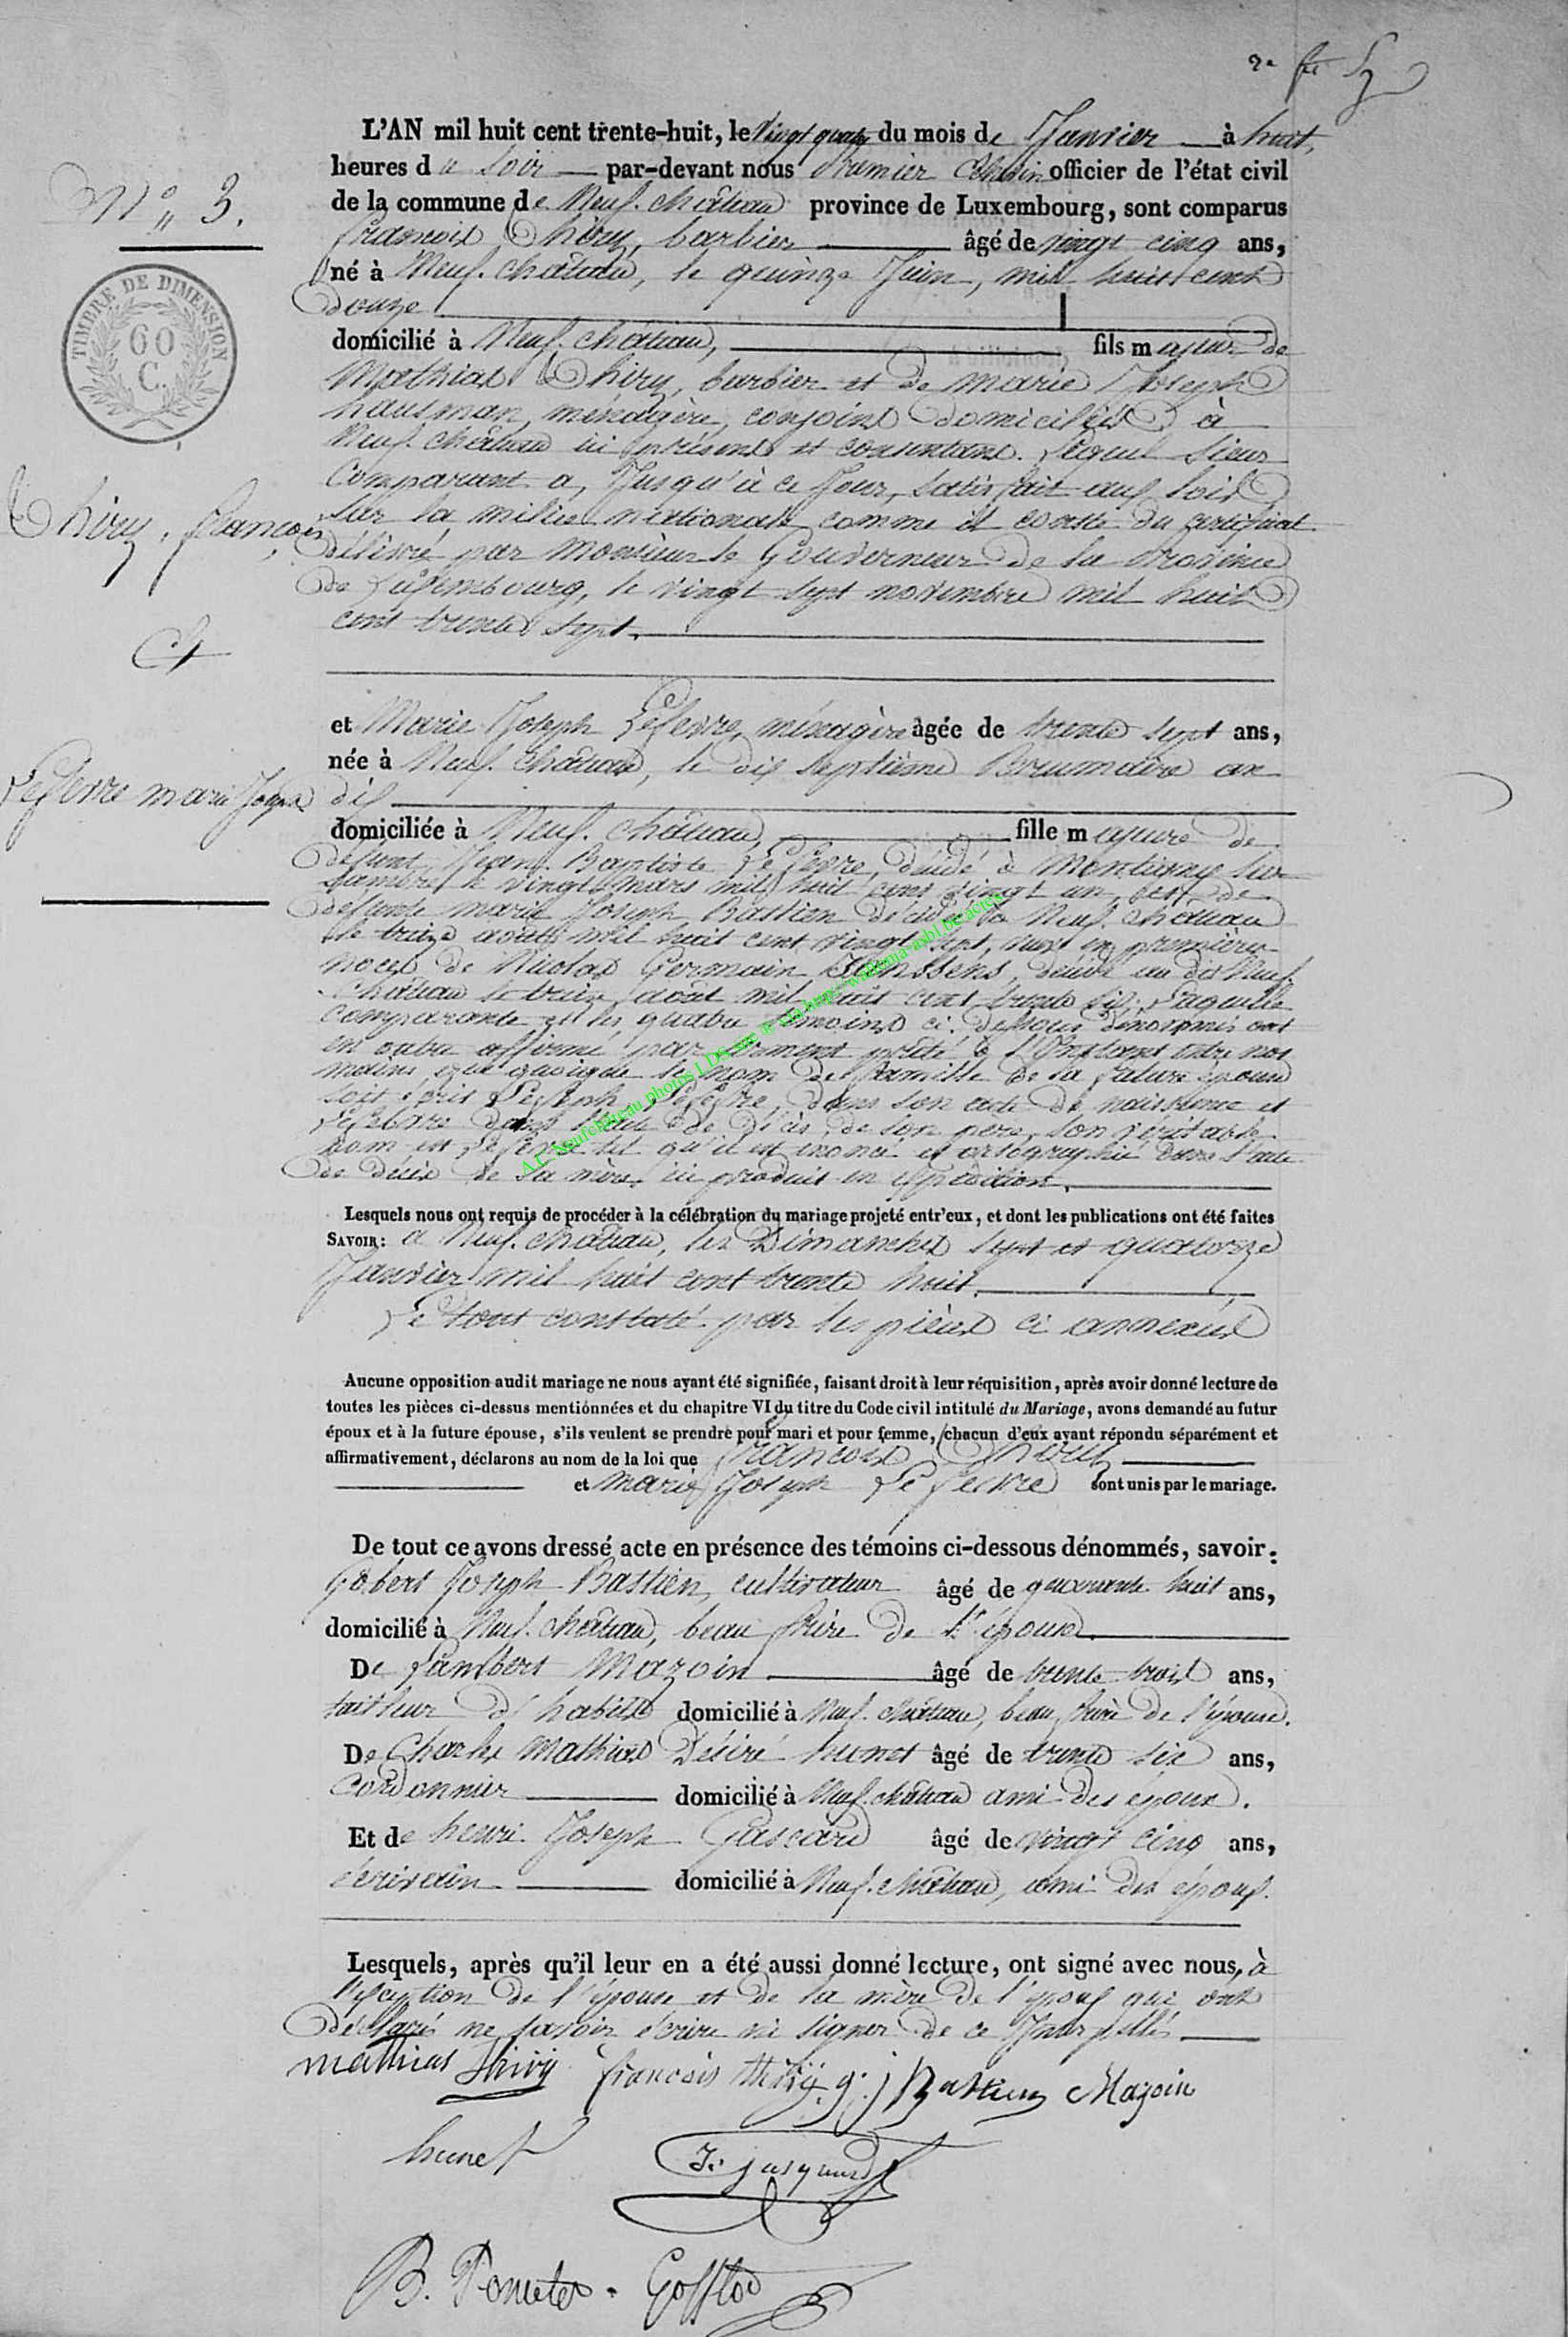 2e
N° 3.
TIMBRE DE DIMENSION
60
C.
Thiry, françois
et
Lefevre marie Joseph
L'AN mil huit cent trente-huit, le Vingt quatre du mois de Janvier à huit
heures du Soir par-devant nous Premier Echevin officier de l'état civil
de la commune de Neuf-château province de Luxembourg, sont comparus
françois Thiry, barbier âgé de vingt cinq ans,
né à Neuf-château, le quinze Juin, mil huit cent
douze
domicilié à Neuf-château, fils majeur de
Mathias Thiry, barbier et de marie Joseph
hausman, ménagère, conjoins domiciliés à
Neuf-château ici présens et consentans. Lequel Sieur
Comparant a, Jusqu'à ce Jour, satisfait aux loix
sur la milice nationale comme il conste du certificat
délivré par Monsieur le Gouverneur de la Province
de Luxembourg, le vingt sept novembre mil huit
cent trente sept.
et Marie Joseph Lefevre, ménagère âgée de trente sept ans,
née à Neuf-château, le dix septième Brumaire an
dix
domiciliée à Neuf-château, fille majeure de
defunt Jean-Baptiste Lefevre, décédé à Montigny sur
Sambre le vingt mars mil huit cent vingt un, et de
defunte marie Joseph Bastien décédée à Neuf-château
le treize août mil huit cent vingt sept, veuve en premières
noces de Nicolas Germain Janssens, décédé au dit Neuf-
château le treize août mil huit cent trente six. Laquelle
Comparante et les quatre témoins ci-dessous dénommés ont
en outre affirmé par serment prêté à l'Instant entre nos
mains, que quoique le nom de famille de la future épouse
soit écrit Lefevre, dans son acte de naissance et
Lefebvre dans l'acte de décès de son père, son véritable
nom est Lefevre tel qu'il est énoncé et ortographié dans l'acte
de décès de sa mère, ici produit en expédition.
A.C. Neufchâteau photos J.DS sur le site http://wallonia-asbl.be/actes
Lesquels nous ont requis de procéder à la célébration du mariage projeté entr'eux, et dont les publications ont été faites
SAVOIR: à Neuf-château, les Dimanches sept et quatorze
Janvier mil huit cent trente huit.
Le tout constaté par les pièces ci annexées
Aucune opposition audit mariage ne nous ayant été signifiée, faisant droit à leur réquisition, après avoir donné lecture de
toutes les pièces ci-dessus mentionnées et du chapitre VI du titre du Code civil intitulé du Mariage, avons demandé au futur
époux et à la future épouse, s'ils veulent se prendre pour mari et pour femme, chacun d'eux ayant répondu séparément et
affirmativement, déclarons au nom de la loi que françois Thiry
et marie Joseph Lefevre sont unis par le mariage.
De tout ce avons dressé acte en présence des témoins ci-dessous dénommés, savoir:
Gobert Joseph Bastien, cultivateur âgé de quarante huit ans,
domicilié à Neuf-château, beau frère de l'épouse.
De Lambert Mazoin âgé de trente trois ans,
tailleur d'habits domicilié à Neuf-château, beau frère de l'épouse.
De Charles Mathias Désiré hunet âgé de trente six ans,
Cordonnier domicilié à Neuf-château ami des epoux.
Et de henri Joseph Gascard âgé de vingt cinq ans,
écrivain domicilié à Neuf-château, ami des époux.
Lesquels, après qu'il leur en a été aussi donné lecture, ont signé avec nous, à
l'exception de l'épouse et de la mère de l'époux qui ont
déclaré ne savoir écrire ni signer de ce Interpellés.
mathias Thiry françois thiry g: j Bastien Mazoin
hunet